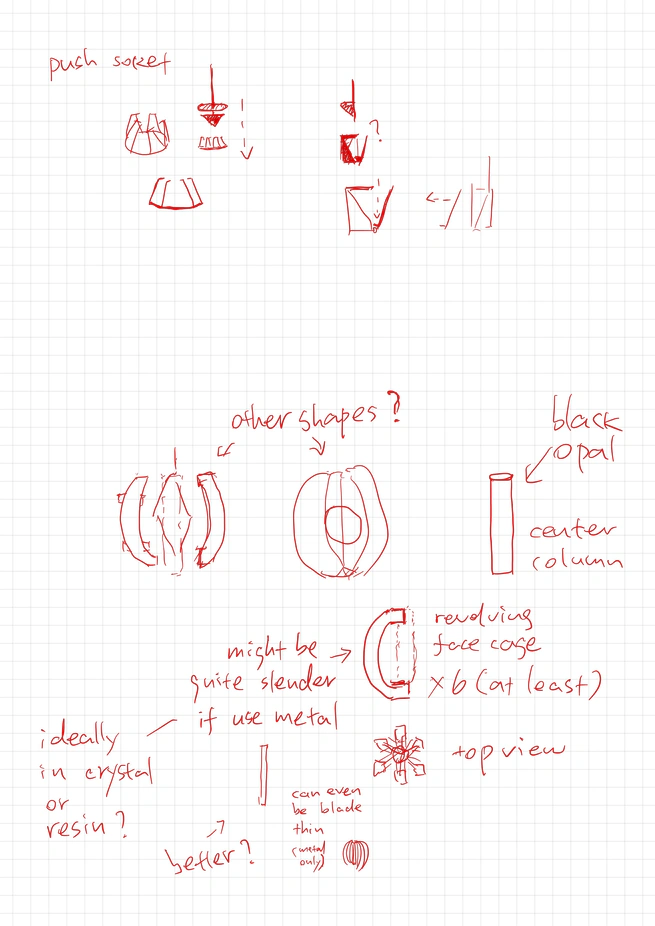 push socket
?
other shapes?
black
opal
center
column
revolving
face cage
×6 (at least)
might be
quite slender
if use metal
ideally
in crystal
or
resin?
top view
can even
be blade
thin
(metal
only)
better?